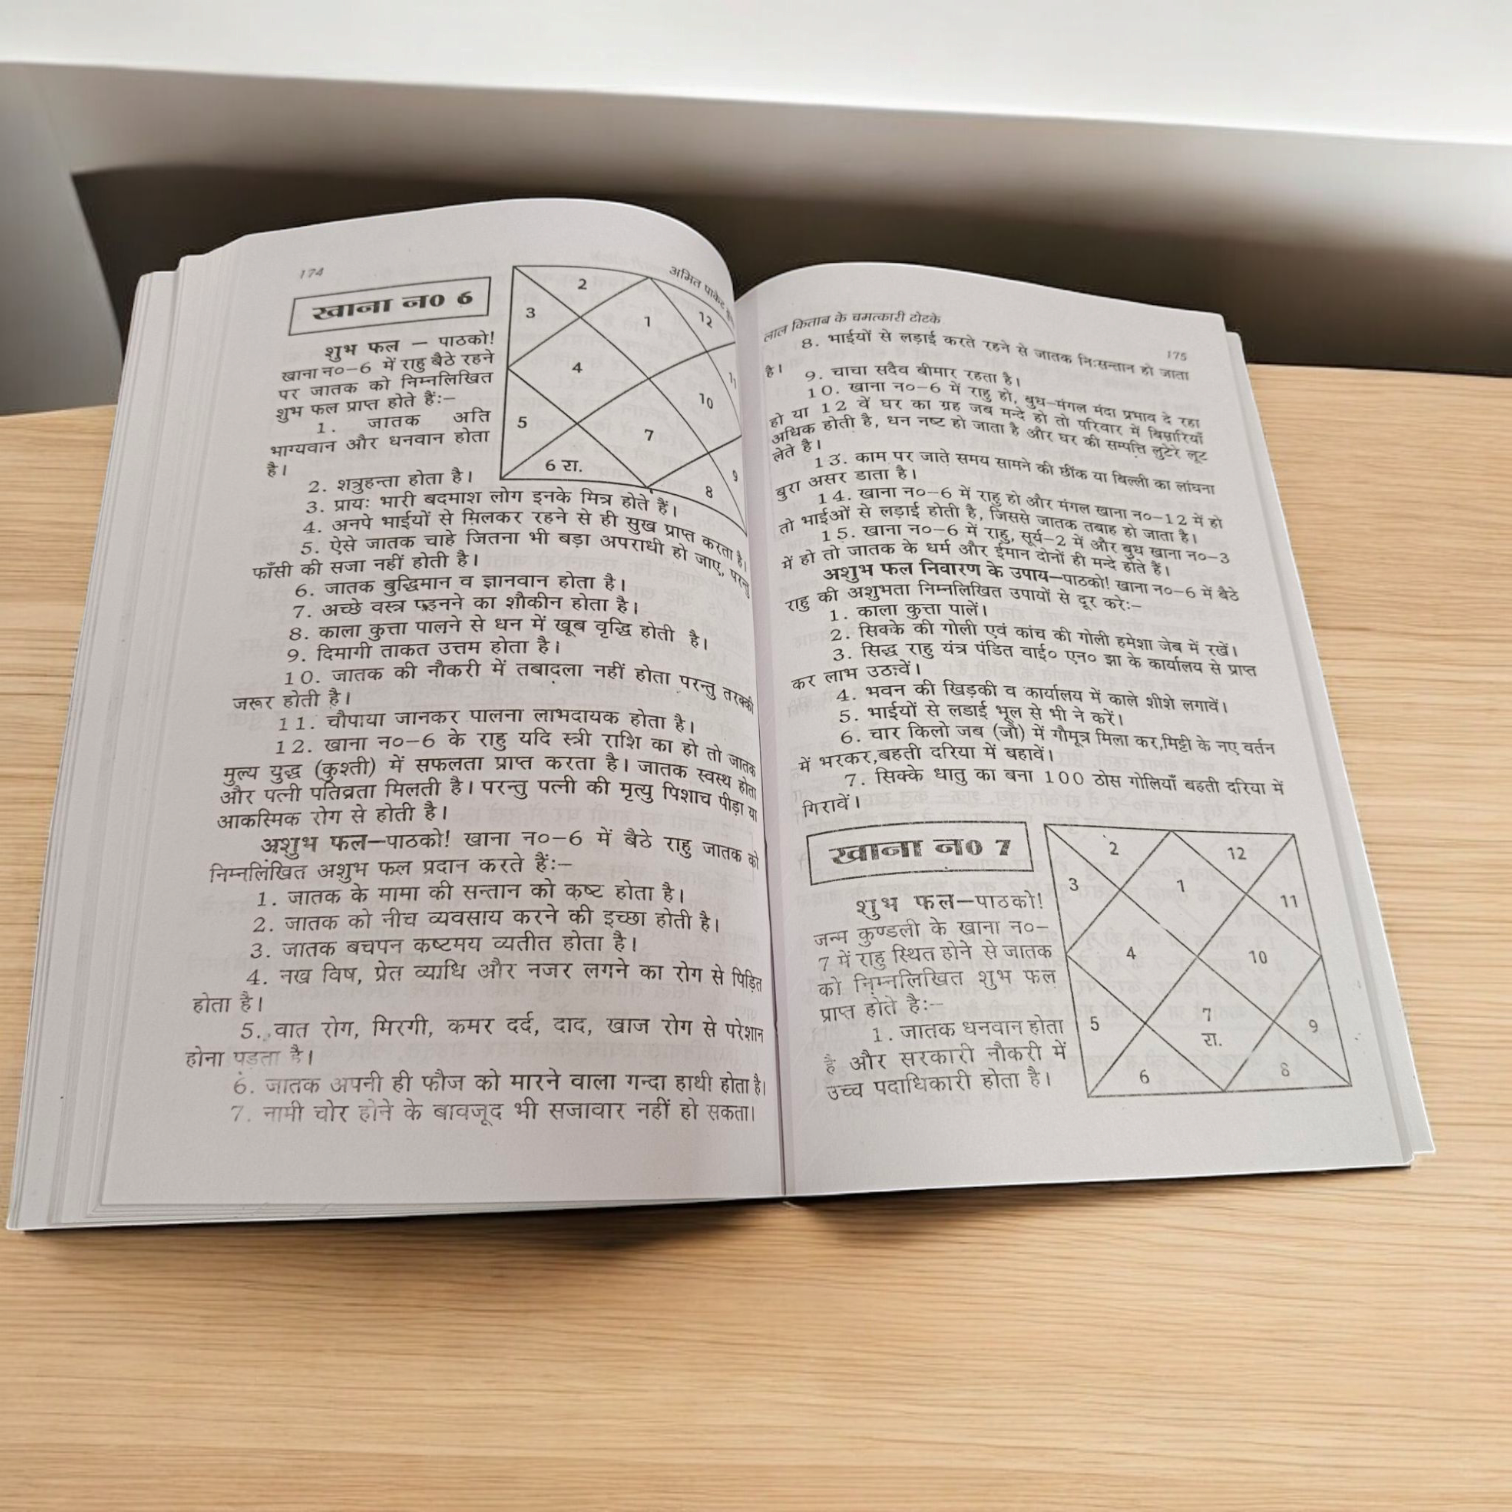 174
अमित पाकेट
खाना न० 6
शुभ फल – पाठको!
खाना न०–6 में राहु बैठे रहने
पर जातक को निम्नलिखित
शुभ फल प्राप्त होते हैं:–
1. जातक अति
भाग्यवान और धनवान होता
है।
2
1
12
3
4
11
10
5
7
6 रा.
8
9
2. शत्रुहन्ता होता है।
3. प्रायः भारी बदमाश लोग इनके मित्र होते हैं।
4. अनपे भाईयों से मिलकर रहने से ही सुख प्राप्त करता है।
5. ऐसे जातक चाहे जितना भी बड़ा अपराधी हो जाए, परन्तु
फाँसी की सजा नहीं होती है।
6. जातक बुद्धिमान व ज्ञानवान होता है।
7. अच्छे वस्त्र पहनने का शौकीन होता है।
8. काला कुत्ता पालने से धन में खूब वृद्धि होती है।
9. दिमागी ताकत उत्तम होता है।
10. जातक की नौकरी में तबादला नहीं होता परन्तु तरक्की
जरूर होती है।
11. चौपाया जानकर पालना लाभदायक होता है।
12. खाना न०–6 के राहु यदि स्त्री राशि का हो तो जातक
मुल्य युद्ध (कुश्ती) में सफलता प्राप्त करता है। जातक स्वस्थ होता
और पत्नी पतिव्रता मिलती है। परन्तु पत्नी की मृत्यु पिशाच पीड़ा या
आकस्मिक रोग से होती है।
अशुभ फल–पाठको! खाना न०–6 में बैठे राहु जातक को
निम्नलिखित अशुभ फल प्रदान करते हैं:–
1. जातक के मामा की सन्तान को कष्ट होता है।
2. जातक को नीच व्यवसाय करने की इच्छा होती है।
3. जातक बचपन कष्टमय व्यतीत होता है।
4. नख विष, प्रेत व्याधि और नजर लगने का रोग से पिड़ित
होता है।
5. वात रोग, मिरगी, कमर दर्द, दाद, खाज रोग से परेशान
होना पड़ता है।
6. जातक अपनी ही फौज को मारने वाला गन्दा हाथी होता है।
7. नामी चोर होने के बावजूद भी सजावार नहीं हो सकता।
लाल किताब के चमत्कारी टोटके
175
8. भाईयों से लड़ाई करते रहने से जातक निःसन्तान हो जाता
है।
9. चाचा सदैव बीमार रहता है।
10. खाना न०–6 में राहु हो, बुध–मंगल मंदा प्रभाव दे रहा
हो या 12 वें घर का ग्रह जब मन्दे हो तो परिवार में बिमारियाँ
अधिक होती है, धन नष्ट हो जाता है और घर की सम्पत्ति लुटेरे लूट
लेते है।
13. काम पर जाते समय सामने की छींक या बिल्ली का लांघना
बुरा असर डाता है।
14. खाना न०–6 में राहु हो और मंगल खाना न०–12 में हो
तो भाईओं से लड़ाई होती है, जिससे जातक तबाह हो जाता है।
15. खाना न०–6 में राहु, सूर्य–2 में और बुध खाना न०–3
में हो तो जातक के धर्म और ईमान दोनों ही मन्दे होते हैं।
अशुभ फल निवारण के उपाय–पाठको! खाना न०–6 में बैठे
राहु की अशुभता निम्नलिखित उपायों से दूर करे:–
1. काला कुत्ता पालें।
2. सिक्के की गोली एवं कांच की गोली हमेशा जेब में रखें।
3. सिद्ध राहु यंत्र पंडित वाई० एन० झा के कार्यालय से प्राप्त
कर लाभ उठावें।
4. भवन की खिड़की व कार्यालय में काले शीशे लगावें।
5. भाईयों से लडाई भूल से भी ने करें।
6. चार किलो जब (जौ) में गौमूत्र मिला कर,मिट्टी के नए वर्तन
में भरकर,बहती दरिया में बहावें।
7. सिक्के धातु का बना 100 ठोस गोलियाँ बहती दरिया में
गिरावें।
खाना न० 7
शुभ फल–पाठको!
जन्म कुण्डली के खाना न०–
7 में राहु स्थित होने से जातक
को निम्नलिखित शुभ फल
प्राप्त होते है:–
1. जातक धनवान होता
है और सरकारी नौकरी में
उच्च पदाधिकारी होता है।
2
12
3
1
11
4
10
5
7
रा.
9
6
8